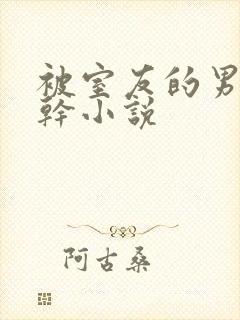 被室友的男
幹小說
阿古桑